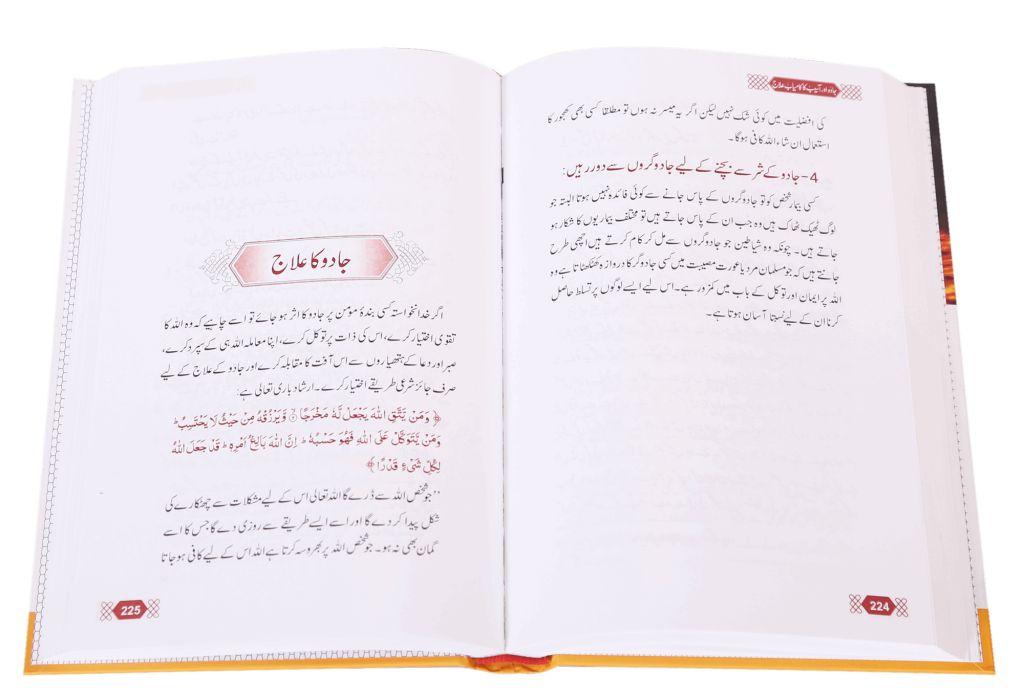 جادو اور آسیب کا کامیاب علاج
کی افضلیت میں کوئی شک نہیں لیکن اگر یہ میسر نہ ہوں تو مطلقا کسی بھی کھجور کا
استعمال ان شاء اللہ کافی ہوگا۔
4- جادو کے شر سے بچنے کے لیے جادوگروں سے دور رہیں:
کسی بیمار شخص کو تو جادوگروں کے پاس جانے سے کوئی فائدہ نہیں ہوتا البتہ جو
لوگ ٹھیک ٹھاک ہیں وہ جب ان کے پاس جاتے ہیں تو مختلف بیماریوں کا شکار ہو
جاتے ہیں۔ چونکہ وہ شیاطین جو جادوگروں سے مل کر کام کرتے ہیں اچھی طرح
جانتے ہیں کہ جو مسلمان مرد یا عورت مصیبت میں کسی جادوگر کا دروازہ کھٹکھٹاتا ہے وہ
اللہ پر ایمان اور توکل کے باب میں کمزور ہے۔ اس لیے ایسے لوگوں پر تسلط حاصل
کرنا ان کے لیے نسبتا آسان ہوتا ہے۔
224
جادو کا علاج
اگر خدانخواستہ کسی بندۂ مومن پر جادو کا اثر ہو جائے تو اسے چاہیے کہ وہ اللہ کا
تقوی اختیار کرے، اس کی ذات پر توکل کرے، اپنا معاملہ اللہ ہی کے سپرد کرے،
صبر اور دعا کے ہتھیاروں سے اس آفت کا مقابلہ کرے اور جادو کے علاج کے لیے
صرف جائز شرعی طریقے اختیار کرے۔ ارشاد باری تعالی ہے:
﴿ وَمَنْ يَّتَّقِ اللّٰهَ يَجْعَلْ لَّهٗ مَخْرَجًا ۙ وَّيَرْزُقْهُ مِنْ حَيْثُ لَا يَحْتَسِبُ ؕ
وَمَنْ يَّتَوَكَّلْ عَلَى اللّٰهِ فَهُوَ حَسْبُهٗ ؕ اِنَّ اللّٰهَ بَالِغُ اَمْرِهٖ ؕ قَدْ جَعَلَ اللّٰهُ
لِكُلِّ شَيْءٍ قَدْرًا ﴾
”جو شخص اللہ سے ڈرے گا اللہ تعالی اس کے لیے مشکلات سے چھٹکارے کی
شکل پیدا کر دے گا اور اسے ایسے طریقے سے روزی دے گا جس کا اسے
گمان بھی نہ ہو۔ جو شخص اللہ پر بھروسہ کرتا ہے اللہ اس کے لیے کافی ہو جاتا
225